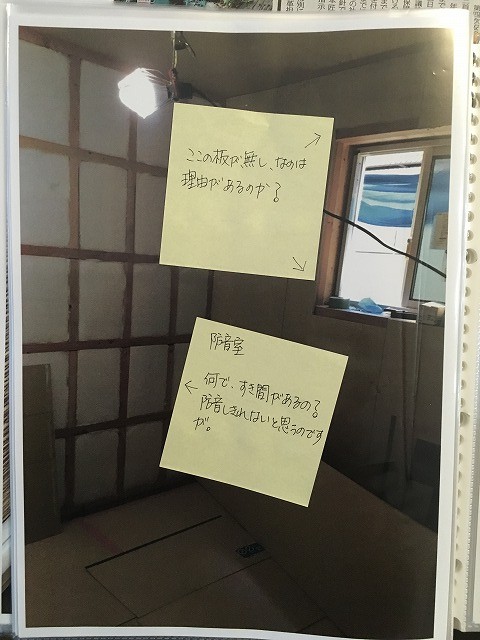 ここの板が、無し、なのは
理由があるのか?
防音室
何で、すき間があるの?
防音しきれないと思うのです
が。